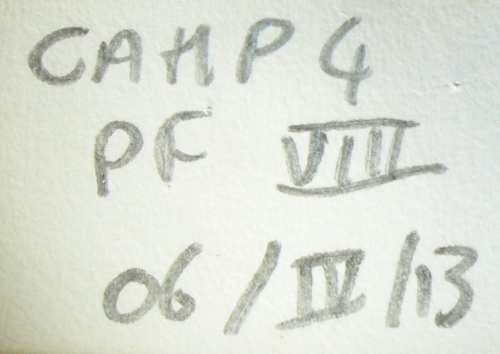 CAMP 4
PF VIII
06/IV/13